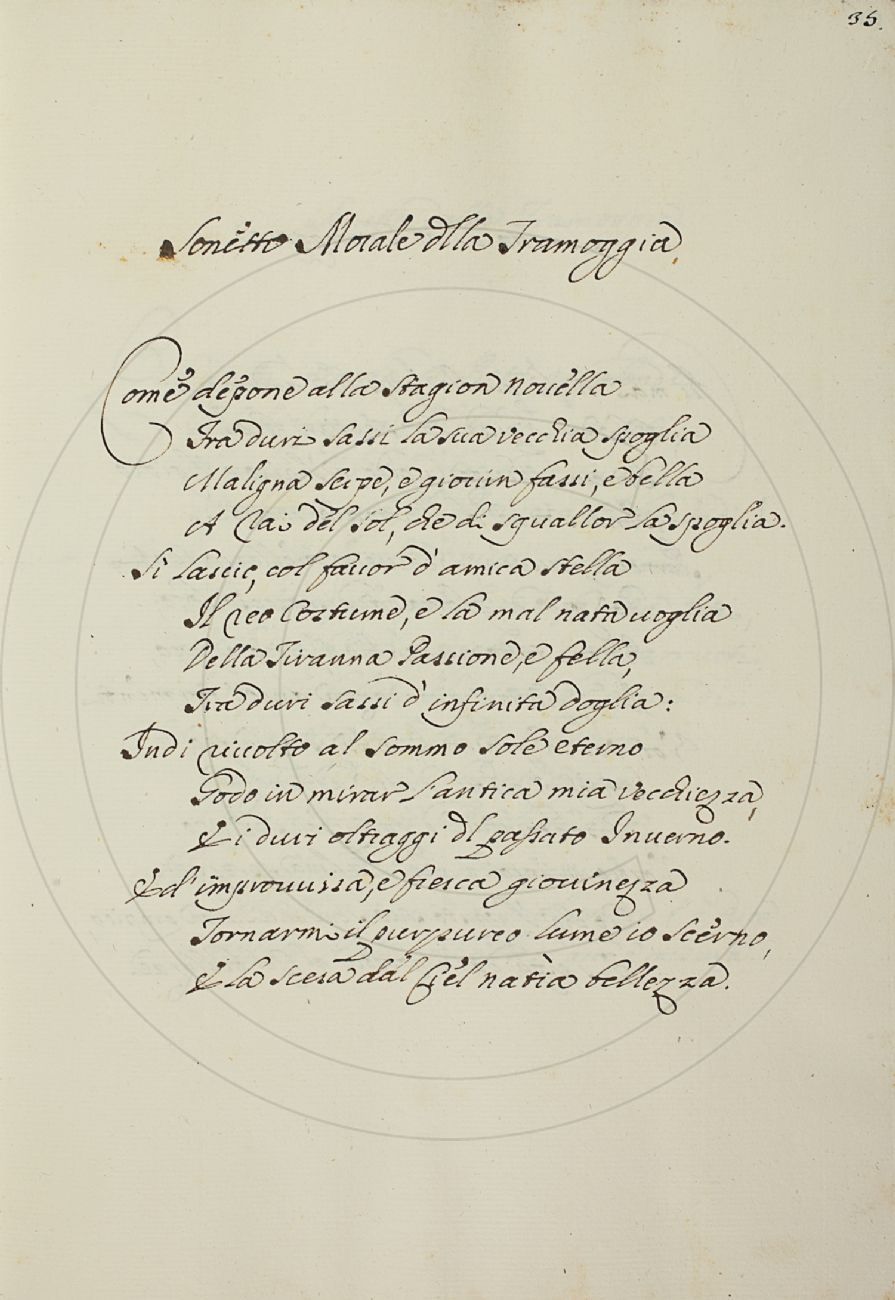 35.
Sonetto Morale dlla Tramoggia
Come depone alla stagion nouella
Tra duri sassi la sua vecchia spoglia
Maligna serpe, e giouin fassi, e bella
A rai del sol, che di squallor la spoglia.
Si lascio, col fauor d'amica stella
Il reo Costume, e la mal nata uoglia
Della Tiranna Passione, e fella,
Tra duri sassi d'infinita doglia:
Indi riuolto al sommo sole eterno
Godo in mirar l'antica mia vecchiezza,
& i duri oltraggi dl passato Inuerno.
& d'improuuisa, e fresca giouinezza
Tornarmi il purpureo lume io scerno,
& la scesa dal Ciel natìa bellezza.